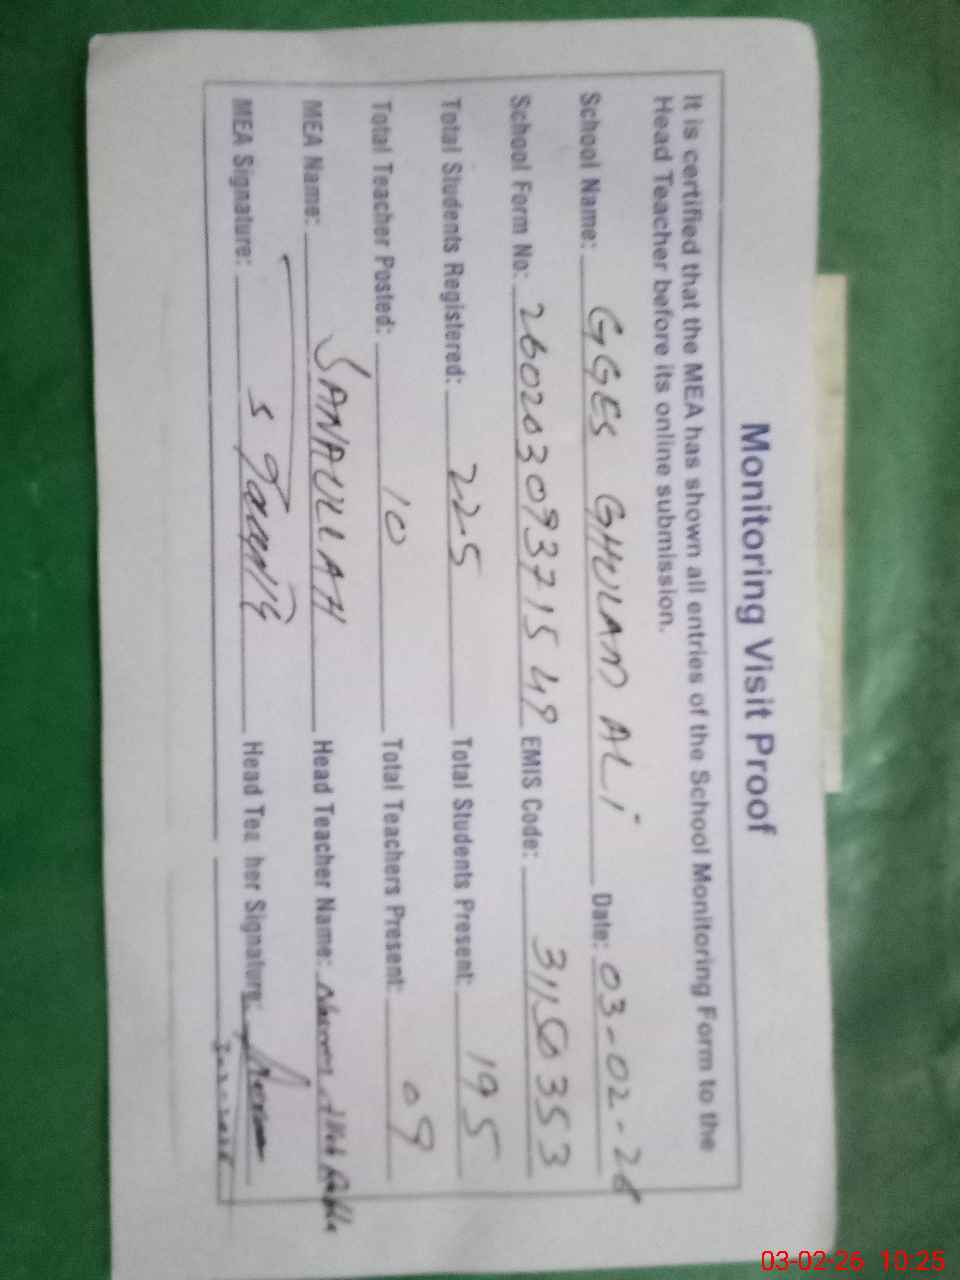 Monitoring Visit Proof
It is certified that the MEA has shown all entries of the School Monitoring Form to the
Head Teacher before its online submission.
School Name: GGES GHULAM ALI Date: 03-02-26
School Form No: 26020309371549 EMIS Code: 31150353
Total Students Registered: 225 Total Students Present: 195
Total Teacher Posted: 10 Total Teachers Present: 09
MEA Name: SANAULLAH Head Teacher Name:
MEA Signature: Head Tea her Signature:
03-02-26 10:25